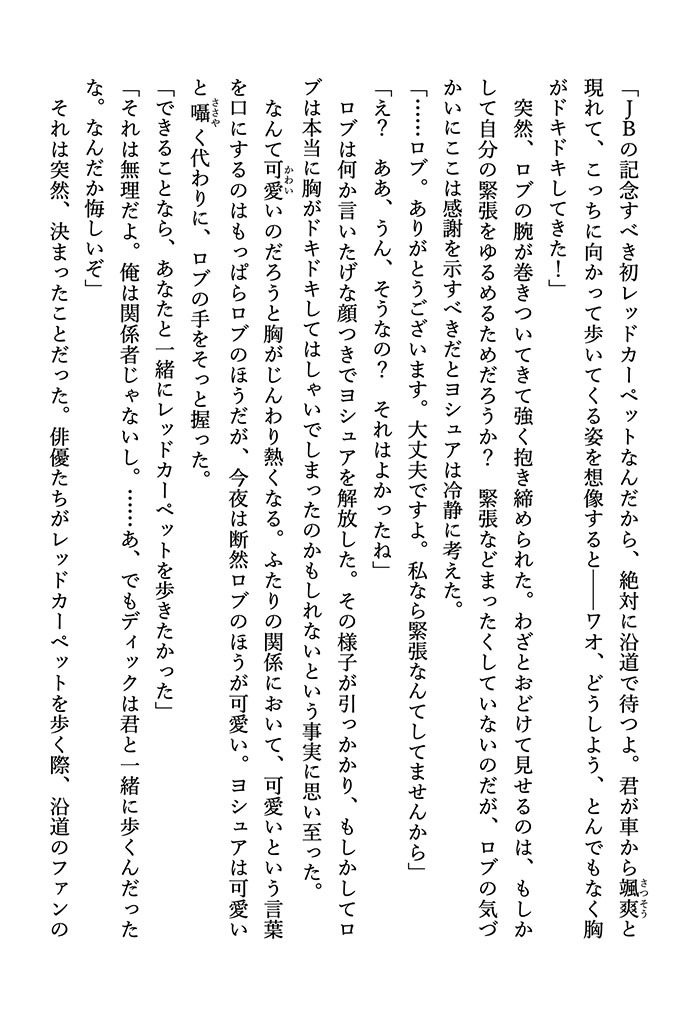 「JBの記念すべき初レッドカーペットなんだから、絶対に沿道で待つよ。君が車から颯爽と
さつそう
現れて、こっちに向かって歩いてくる姿を想像すると――ワオ、どうしよう、とんでもなく胸
がドキドキしてきた！」
　突然、ロブの腕が巻きついてきて強く抱き締められた。わざとおどけて見せるのは、もしか
して自分の緊張をゆるめるためだろうか？　緊張などまったくしていないのだが、ロブの気づ
かいにここは感謝を示すべきだとヨシュアは冷静に考えた。
「……ロブ。ありがとうございます。大丈夫ですよ。私なら緊張なんてしてませんから」
「え？　ああ、うん、そうなの？　それはよかったね」
　ロブは何か言いたげな顔つきでヨシュアを解放した。その様子が引っかかり、もしかしてロ
ブは本当に胸がドキドキしてはしゃいでしまったのかもしれないという事実に思い至った。
　なんて可愛いのだろうと胸がじんわり熱くなる。ふたりの関係において、可愛いという言葉
かわい
を口にするのはもっぱらロブのほうだが、今夜は断然ロブのほうが可愛い。ヨシュアは可愛い
と囁く代わりに、ロブの手をそっと握った。
ささや
「できることなら、あなたと一緒にレッドカーペットを歩きたかった」
「それは無理だよ。俺は関係者じゃないし。……あ、でもディックは君と一緒に歩くんだった
な。なんだか悔しいぞ」
　それは突然、決まったことだった。俳優たちがレッドカーペットを歩く際、沿道のファンの